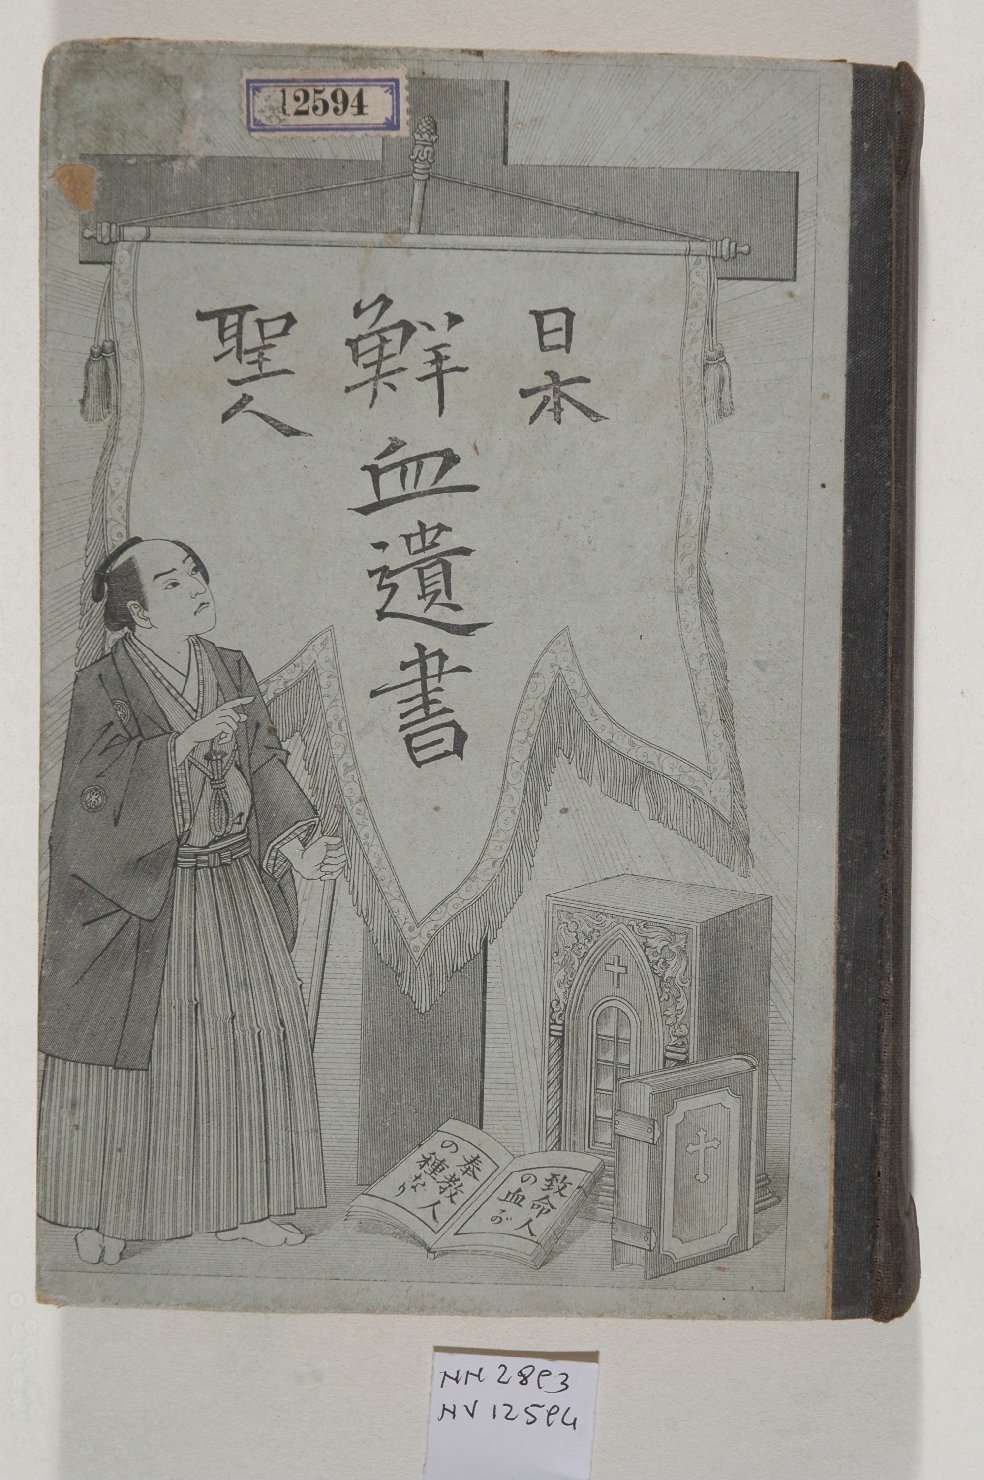 12594
日本
聖人
鮮血遺書
致命人
の血が
奉教人
の種なり
NN 2893
NV 12594